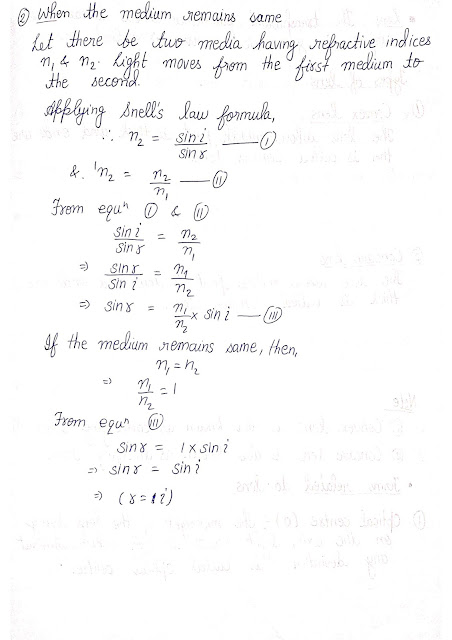 ② When the medium remains same
Let there be two media having refractive indices
n₁ & n₂. Light moves from the first medium to
the second.
Applying Snell's law formula,
∴ n₂ = sin i / sin r —— Ⓘ
&. ¹n₂ = n₂ / n₁ —— Ⓘⓘ
From equⁿ Ⓘ & Ⓘⓘ
sin i / sin r = n₂ / n₁
⇒ sin r / sin i = n₁ / n₂
⇒ sin r = n₁ / n₂ × sin i —— Ⓘⓘⓘ
If the medium remains same, then,
n₁ = n₂
⇒ n₁ / n₂ = 1
From equⁿ Ⓘⓘⓘ
sin r = 1 × sin i
⇒ sin r = sin i
⇒ (r = i)